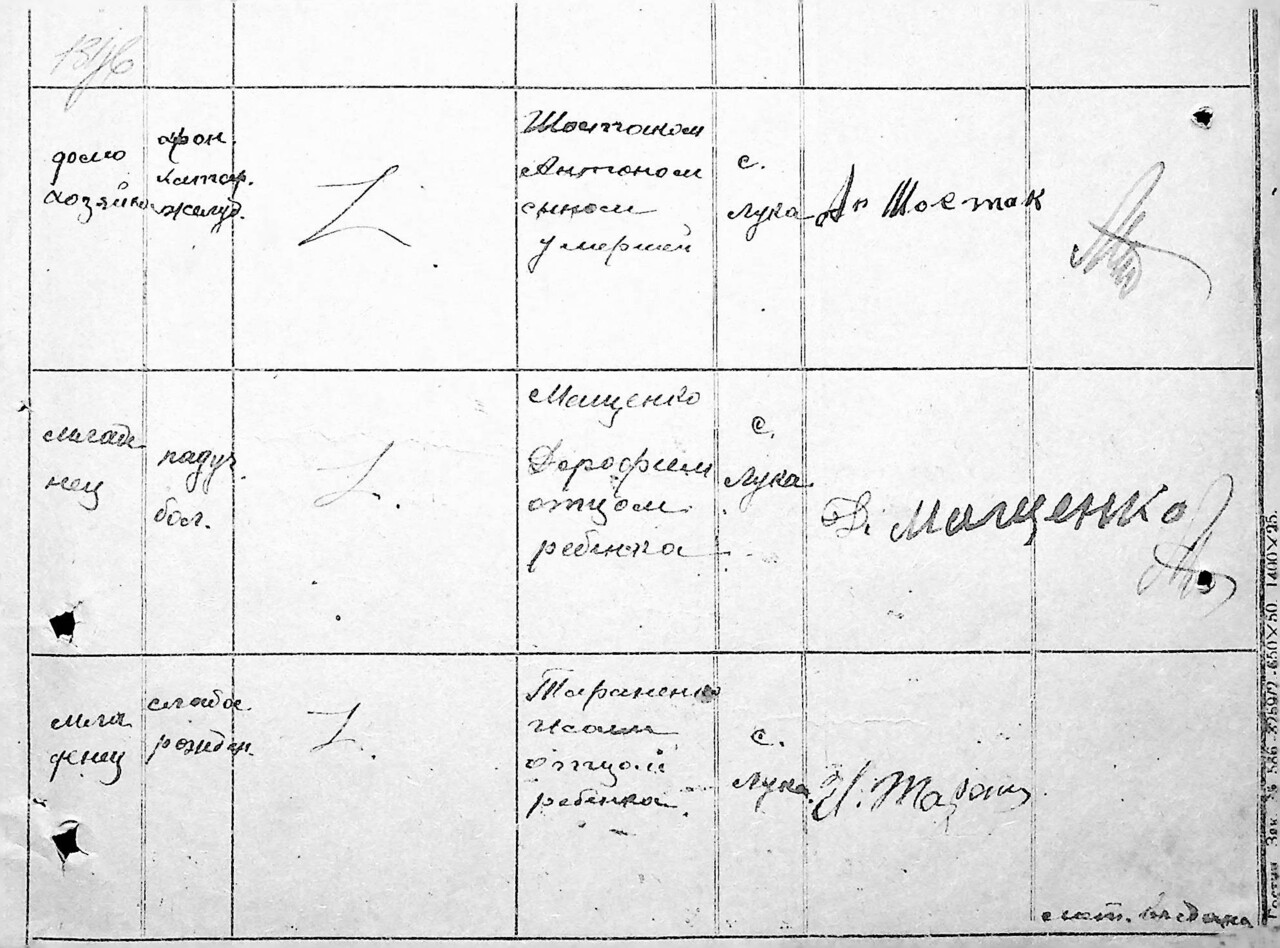 домо
хозяйка
хрон.
катар.
желуд.
Шостаком
Антоном
сыном
умершей
с.
Лука
Ан Шостак
младе
нец
падуч.
бол.
Мащенко
Дорофеем
отцом
ребенка
с.
Лука
Д. Мащенко
мла
денец
слабое
рожден.
Тараненко
отцом
ребенка
с.
Лука
И. Таран
650×50. 1400×25.